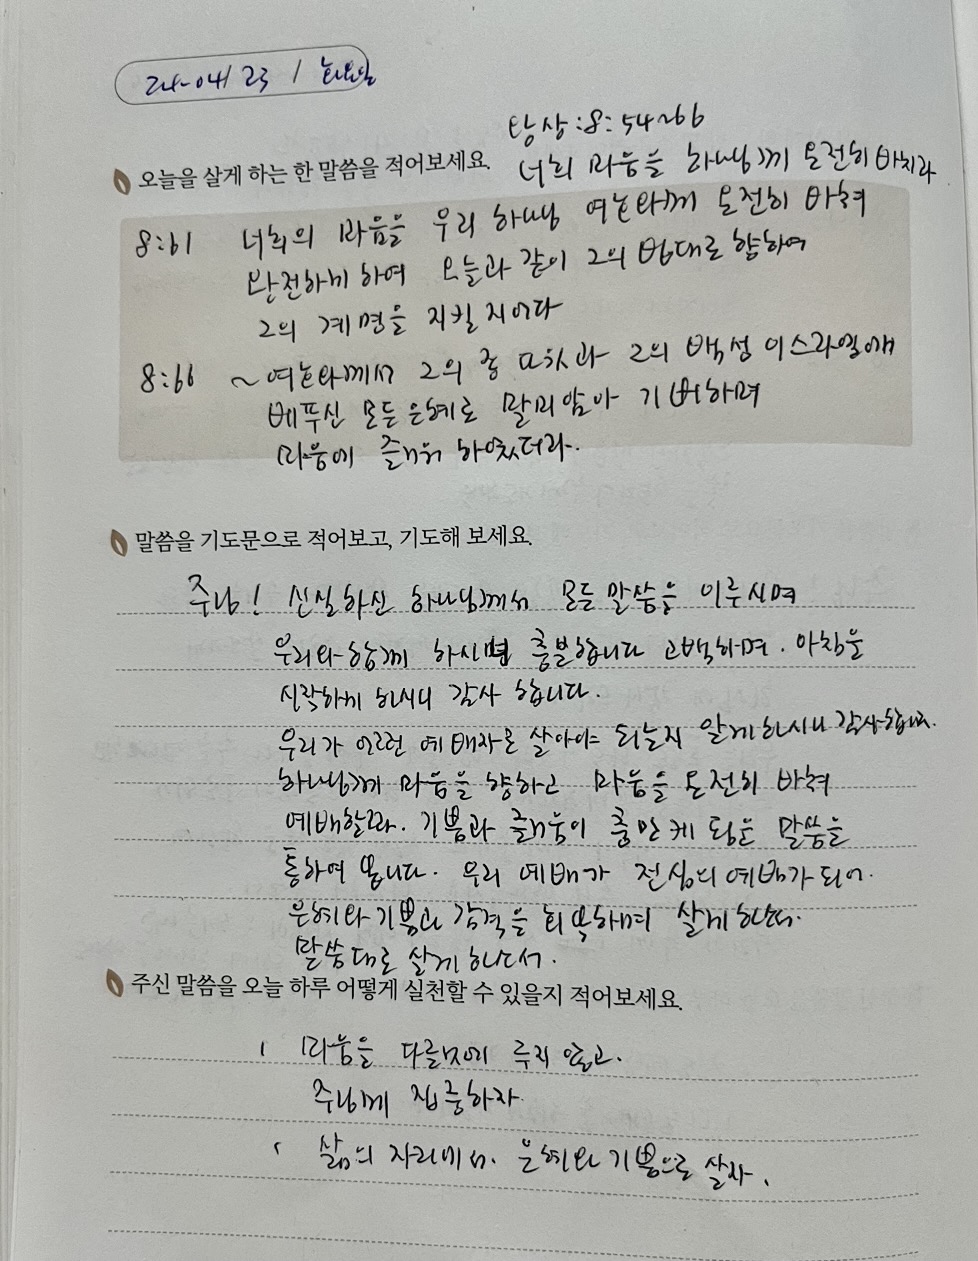 24-04/23 / 화요일
왕상:8:54~66
오늘을 살게 하는 한 말씀을 적어보세요.
너희 마음을 하나님께 온전히 바치라
8:61 너희의 마음을 우리 하나님 여호와께 온전히 바쳐
완전하게 하여 오늘과 같이 그의 법대로 행하여
그의 계명을 지킬지어다
8:66 ~여호와께서 그의 종 다윗과 그의 백성 이스라엘에
베푸신 모든 은혜로 말미암아 기뻐하며
마음에 즐거워 하였더라.
말씀을 기도문으로 적어보고, 기도해 보세요.
주님! 신실하신 하나님께서 모든 말씀을 이루시며
우리와 함께 하시면 충분합니다 고백하며. 아침을
시작하게 하시니 감사 합니다.
우리가 어떤 예배자로 살아야 되는지 알게하시니 감사합니다.
하나님께 마음을 향하고 마음을 온전히 바쳐
예배할때. 기쁨과 즐거움이 충만케 됨은 말씀을
통하여 봅니다. 우리 예배가 전심의 예배가 되어.
은혜와 기쁨과 감격을 회복하며 살게 하소서.
말씀대로 살게 하소서.
주신 말씀을 오늘 하루 어떻게 실천할 수 있을지 적어보세요.
마음을 다른곳에 두지 않고.
주님께 집중하자.
삶의 자리에서. 은혜와 기쁨으로 살자.